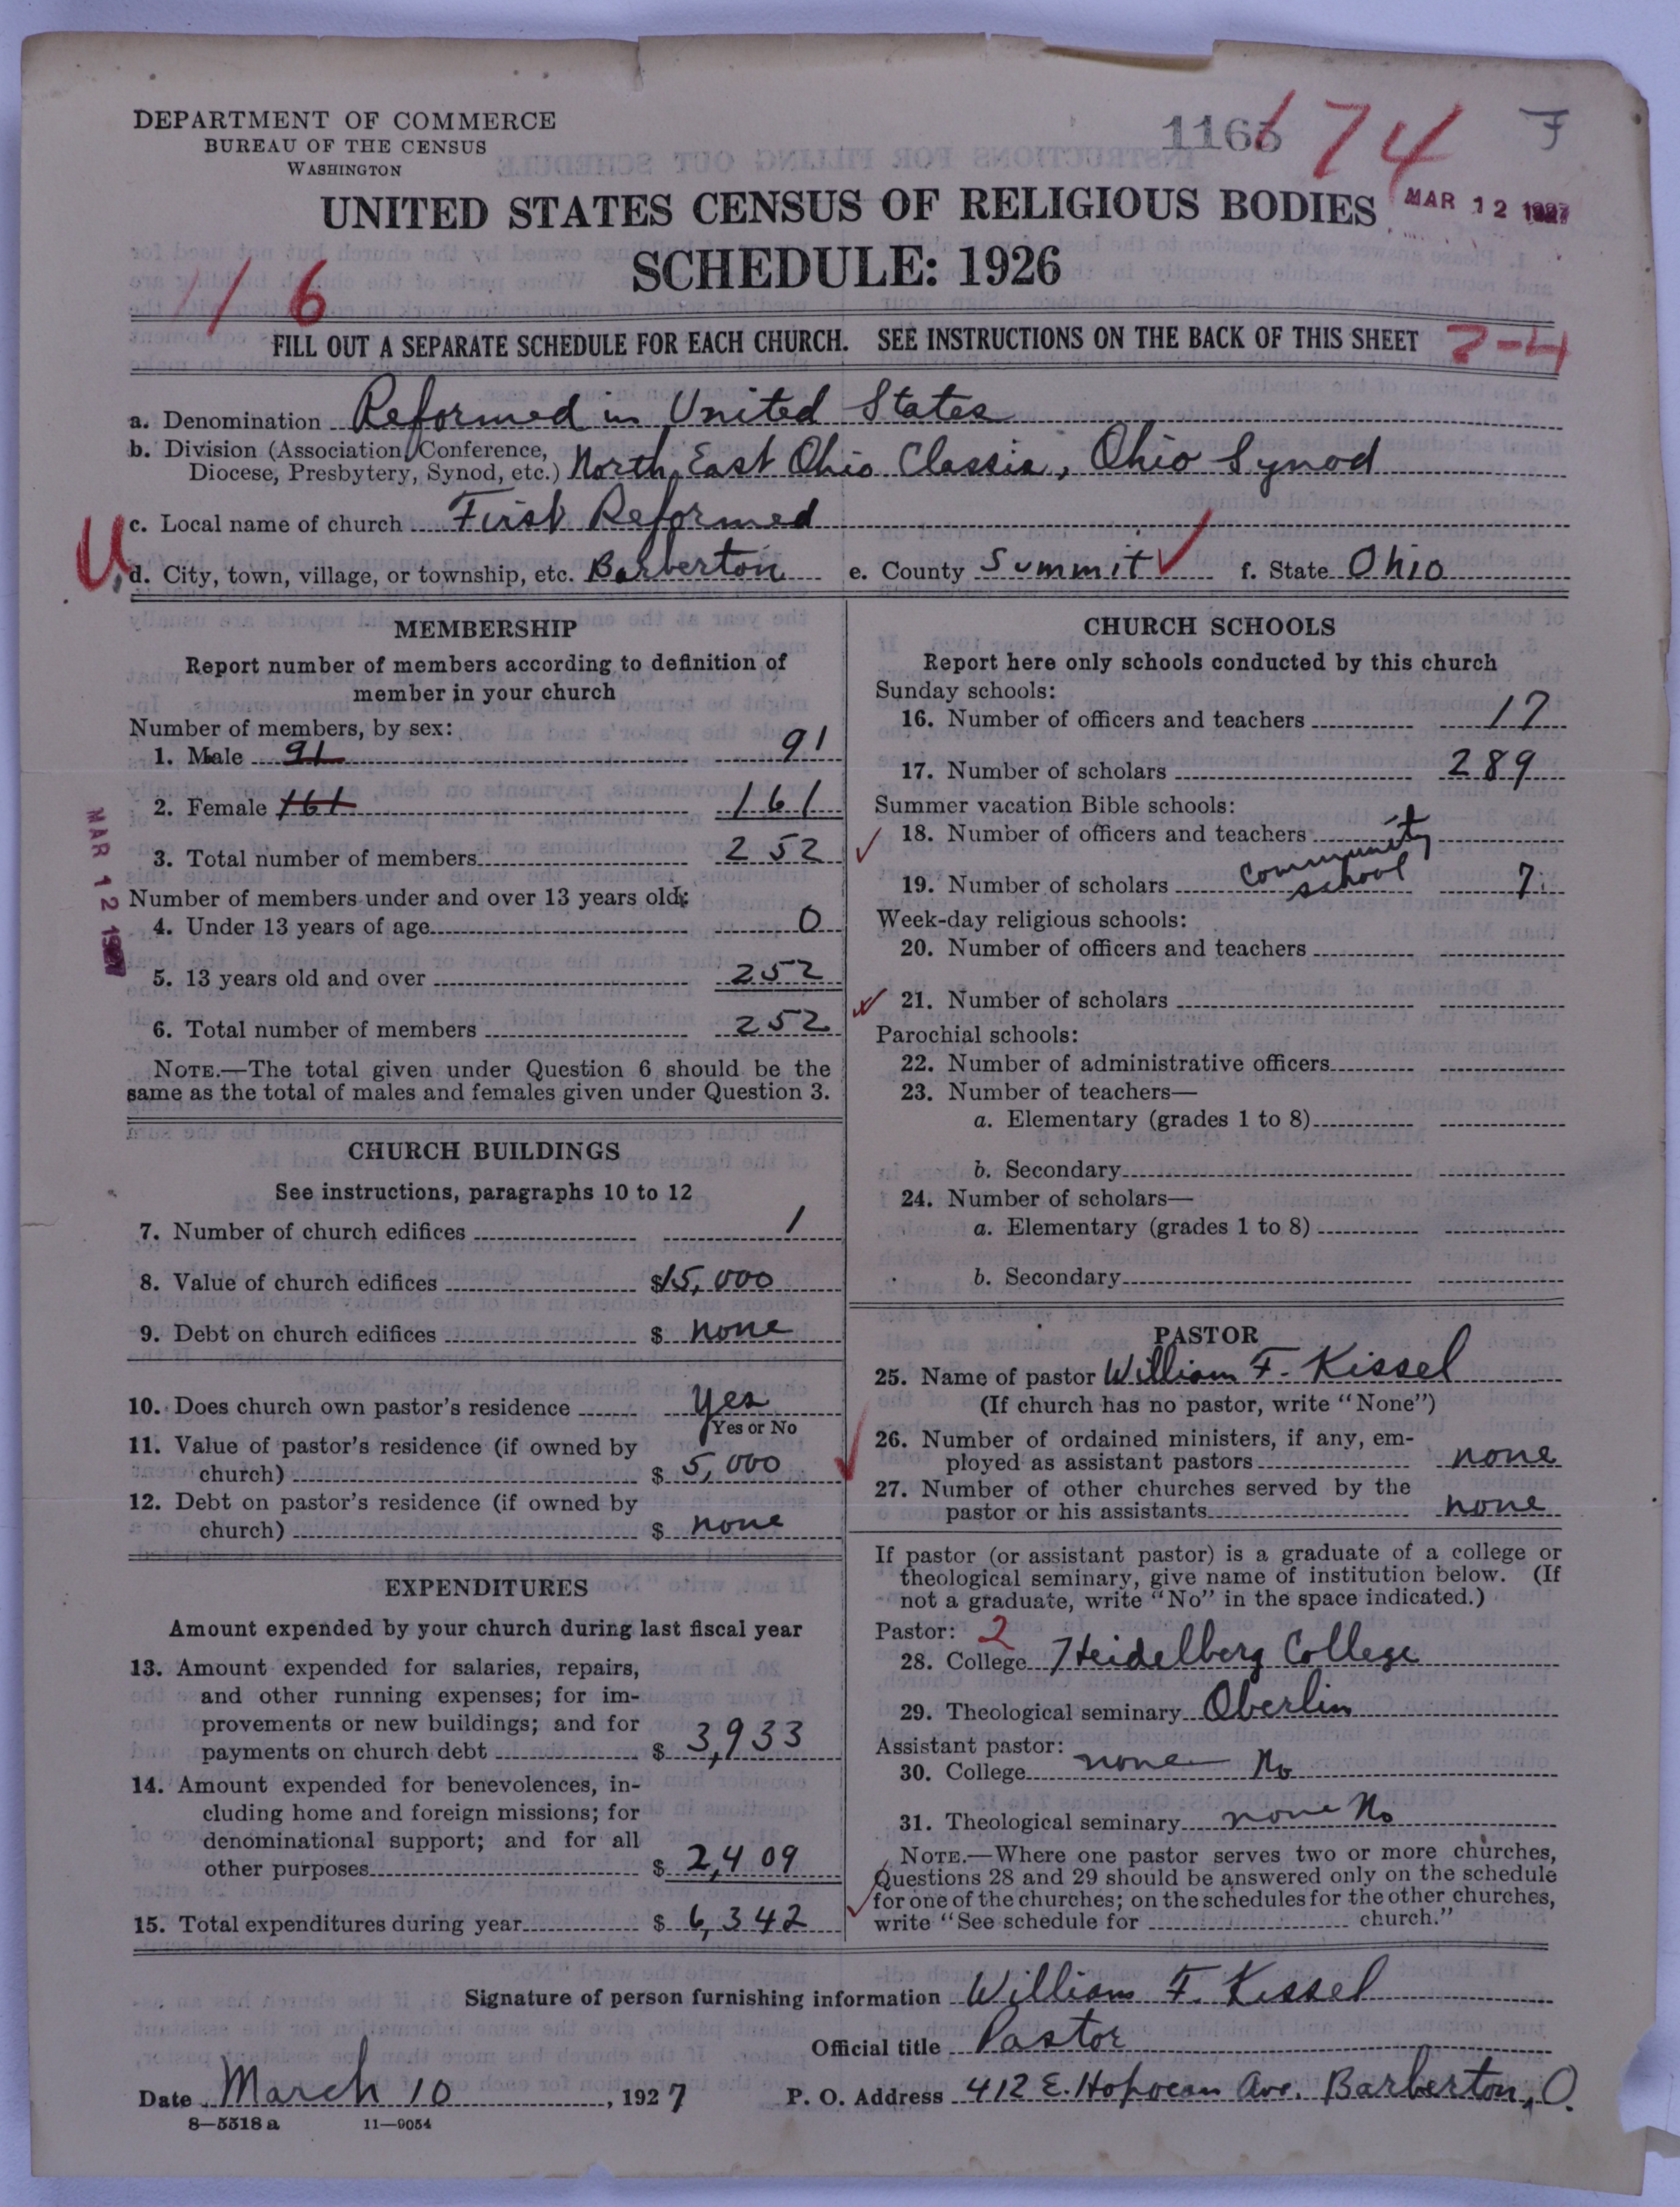 DEPARTMENT OF COMMERCE
BUREAU OF THE CENSUS
WASHINGTON
1166 174 F
UNITED STATES CENSUS OF RELIGIOUS BODIES
MAR 12 1927
SCHEDULE: 1926
116
FILL OUT A SEPARATE SCHEDULE FOR EACH CHURCH. SEE INSTRUCTIONS ON THE BACK OF THIS SHEET 2-4
a. Denomination Reformed in United States
b. Division (Association, Conference,
Diocese, Presbytery, Synod, etc.) North East Ohio Classis, Ohio Synod
c. Local name of church First Reformed
U
d. City, town, village, or township, etc. Barberton e. County Summit ✓ f. State Ohio
MEMBERSHIP
Report number of members according to definition of
member in your church
Number of members, by sex:
1. Male 91 91
2. Female 161 161
3. Total number of members 252
Number of members under and over 13 years old:
4. Under 13 years of age 0
5. 13 years old and over 252
6. Total number of members 252
NOTE.—The total given under Question 6 should be the
same as the total of males and females given under Question 3.
MAR 12 1927
CHURCH BUILDINGS
See instructions, paragraphs 10 to 12
7. Number of church edifices 1
8. Value of church edifices $15,000
9. Debt on church edifices $ none
10. Does church own pastor's residence Yes
Yes or No
11. Value of pastor's residence (if owned by
church) $ 5,000
12. Debt on pastor's residence (if owned by
church) $ none
EXPENDITURES
Amount expended by your church during last fiscal year
13. Amount expended for salaries, repairs,
and other running expenses; for im-
provements or new buildings; and for
payments on church debt $ 3,933
14. Amount expended for benevolences, in-
cluding home and foreign missions; for
denominational support; and for all
other purposes $ 2,409
15. Total expenditures during year $ 6,342
CHURCH SCHOOLS
Report here only schools conducted by this church
Sunday schools:
16. Number of officers and teachers 17
17. Number of scholars 289
Summer vacation Bible schools:
18. Number of officers and teachers
community
19. Number of scholars school 7
Week-day religious schools:
20. Number of officers and teachers
21. Number of scholars
Parochial schools:
22. Number of administrative officers
23. Number of teachers—
a. Elementary (grades 1 to 8)
b. Secondary
24. Number of scholars—
a. Elementary (grades 1 to 8)
b. Secondary
PASTOR
25. Name of pastor William F. Kissel
(If church has no pastor, write "None")
26. Number of ordained ministers, if any, em-
ployed as assistant pastors none
27. Number of other churches served by the
pastor or his assistants none
If pastor (or assistant pastor) is a graduate of a college or
theological seminary, give name of institution below. (If
not a graduate, write "No" in the space indicated.)
Pastor: 2
28. College Heidelberg College
29. Theological seminary Oberlin
Assistant pastor:
30. College none No
31. Theological seminary none No
NOTE.—Where one pastor serves two or more churches,
Questions 28 and 29 should be answered only on the schedule
for one of the churches; on the schedules for the other churches,
write "See schedule for church."
Signature of person furnishing information William F. Kissel
Official title Pastor
Date March 10, 1927 P. O. Address 412 E. Hopocan Ave. Barberton, O.
8—5518 a 11—9054